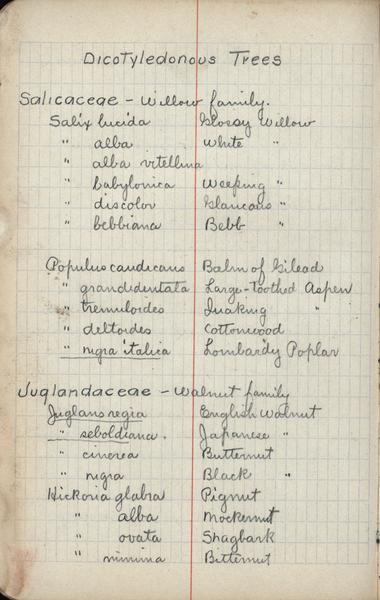 Dicotyledonous Trees
Salicaceae - Willow family.
Salix lucida Glossy Willow
" alba White "
" alba vitellina
" babylonica Weeping "
" discolor Glaucous "
" bebbiana Bebb "
Populus candicans Balm of Gilead
" grandidentata Large-toothed Aspen
" tremuloides Quaking "
" deltoides Cottonwood
" nigra italica Lombardy Poplar
Juglandaceae - Walnut family
Juglans regia English Walnut
" seboldiana. Japanese "
" cinerea Butternut
" nigra Black "
Hickoria glabra Pignut
" alba Mockernut
" ovata Shagbark
" minima Bitternut